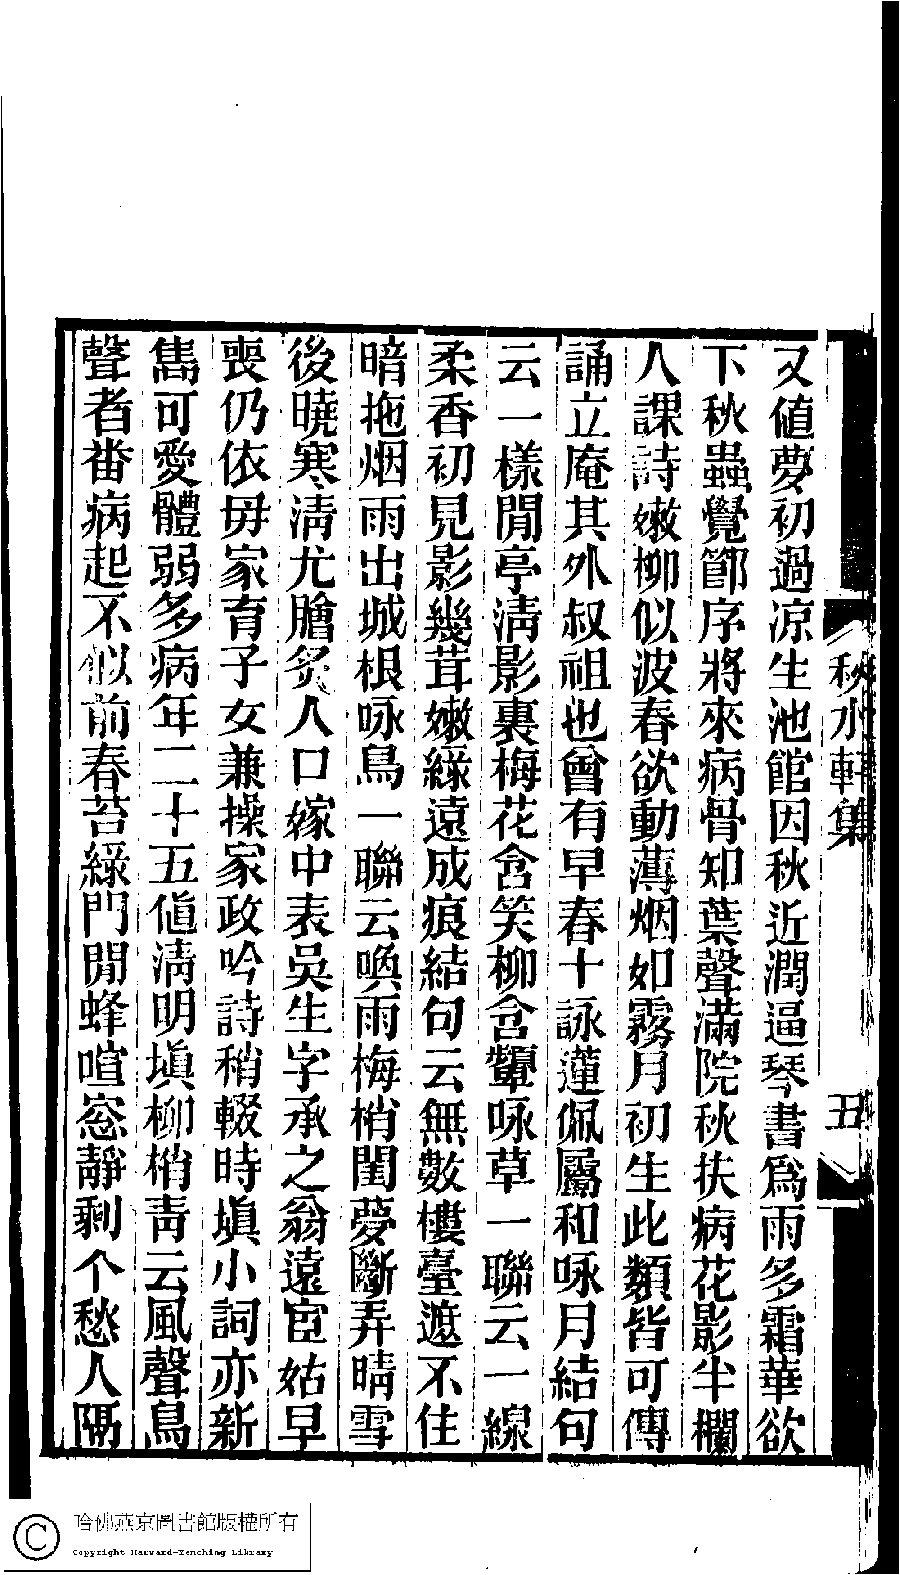 秋水軒集
五
又値夢初過凉生池館因秋近潤逼琴書爲雨多霜華欲
下秋蟲覺節序將來病骨知葉聲滿院秋扶病花影半欄
人課詩嫩柳似波春欲動薄烟如霧月初生此類皆可傳
誦立庵其外叔祖也曾有早春十詠蓮佩屬和咏月結句
云一樣閒亭淸影裏梅花含笑柳含顰咏草一聯云一線
柔香初見影幾茸嫩綠遠成痕結句云無數樓臺遮不住
暗拖烟雨出城根咏鳥一聯云喚雨梅梢閨夢斷弄晴雪
後曉寒淸尤膾炙人口嫁中表吳生字承之翁遠宦姑早
喪仍依母家育子女兼操家政吟詩稍輟時塡小詞亦新
雋可愛體弱多病年二十五値淸明塡柳梢靑云風聲鳥
聲者番病起不似前春苔綠門閒蜂喧窓靜剩个愁人隔
哈佛燕京圖書館版權所有
Copyright Harvard-Yenching Library